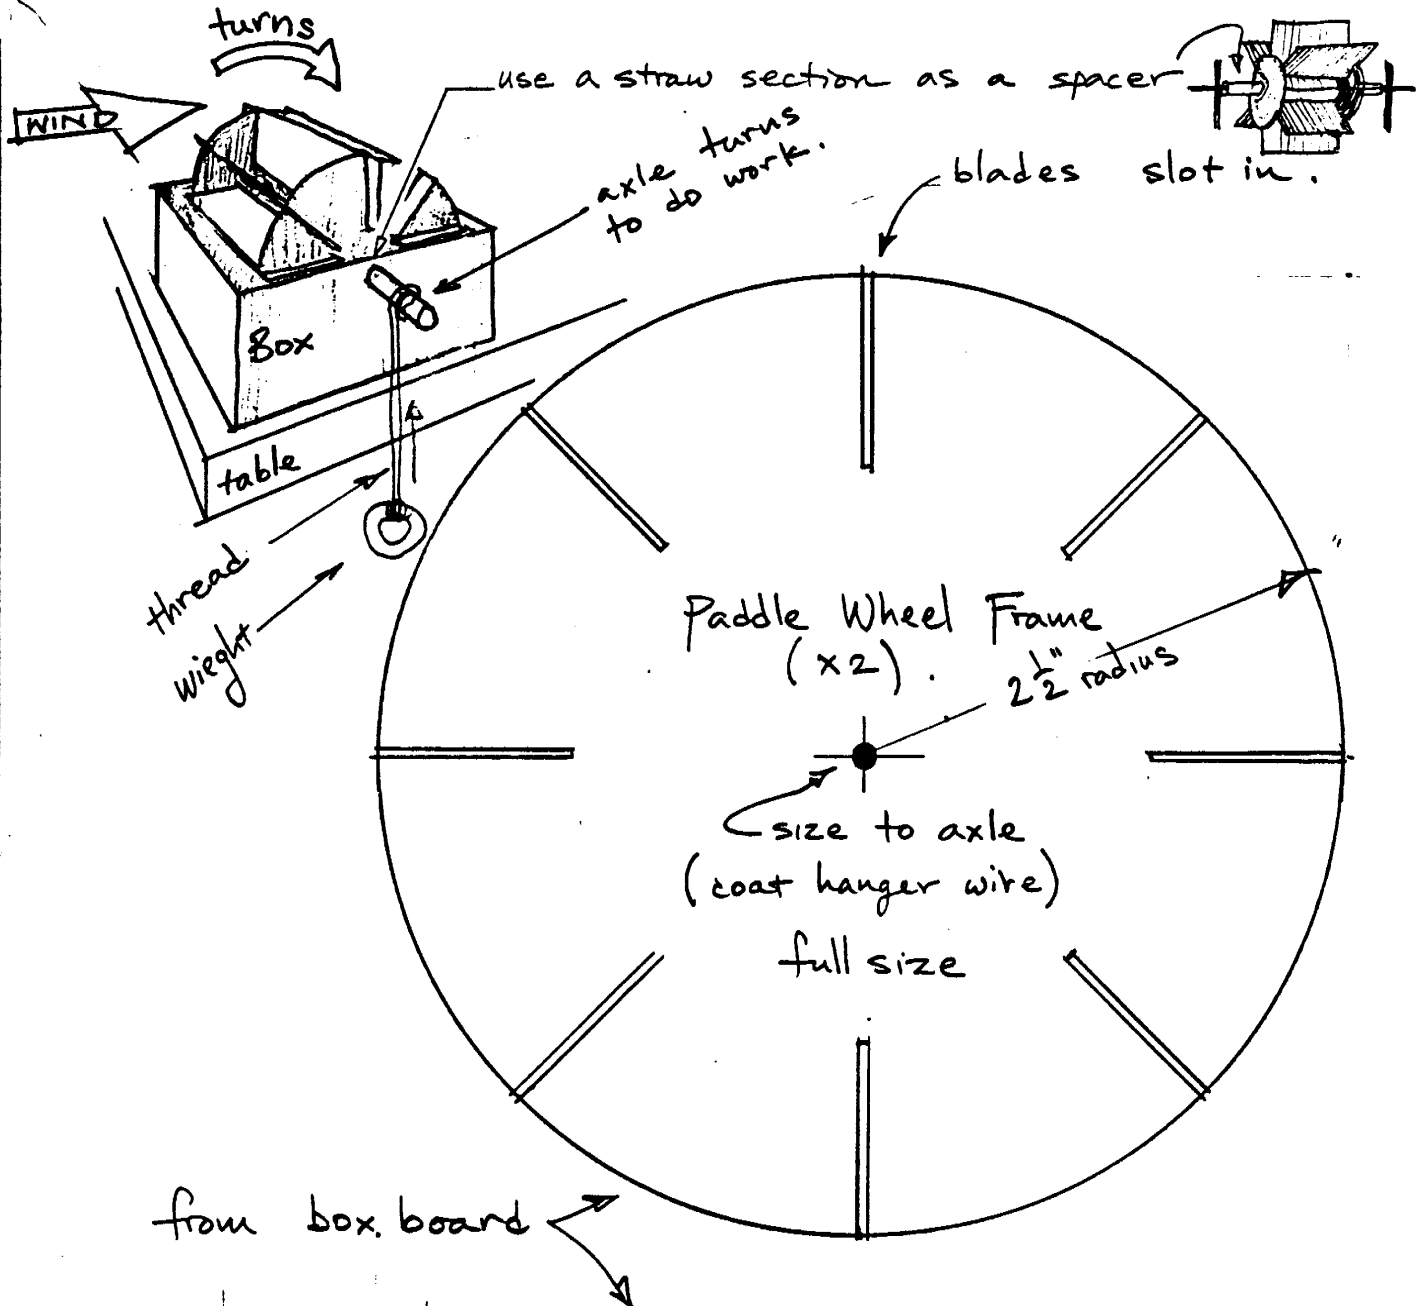 turns
WIND
use a straw section as a spacer
axle turns
to do work.
blades slot in.
Box
table
thread
wieght
Paddle Wheel Frame
(x2).
2 1/2" radius
size to axle
(coat hanger wire)
full size
from box board